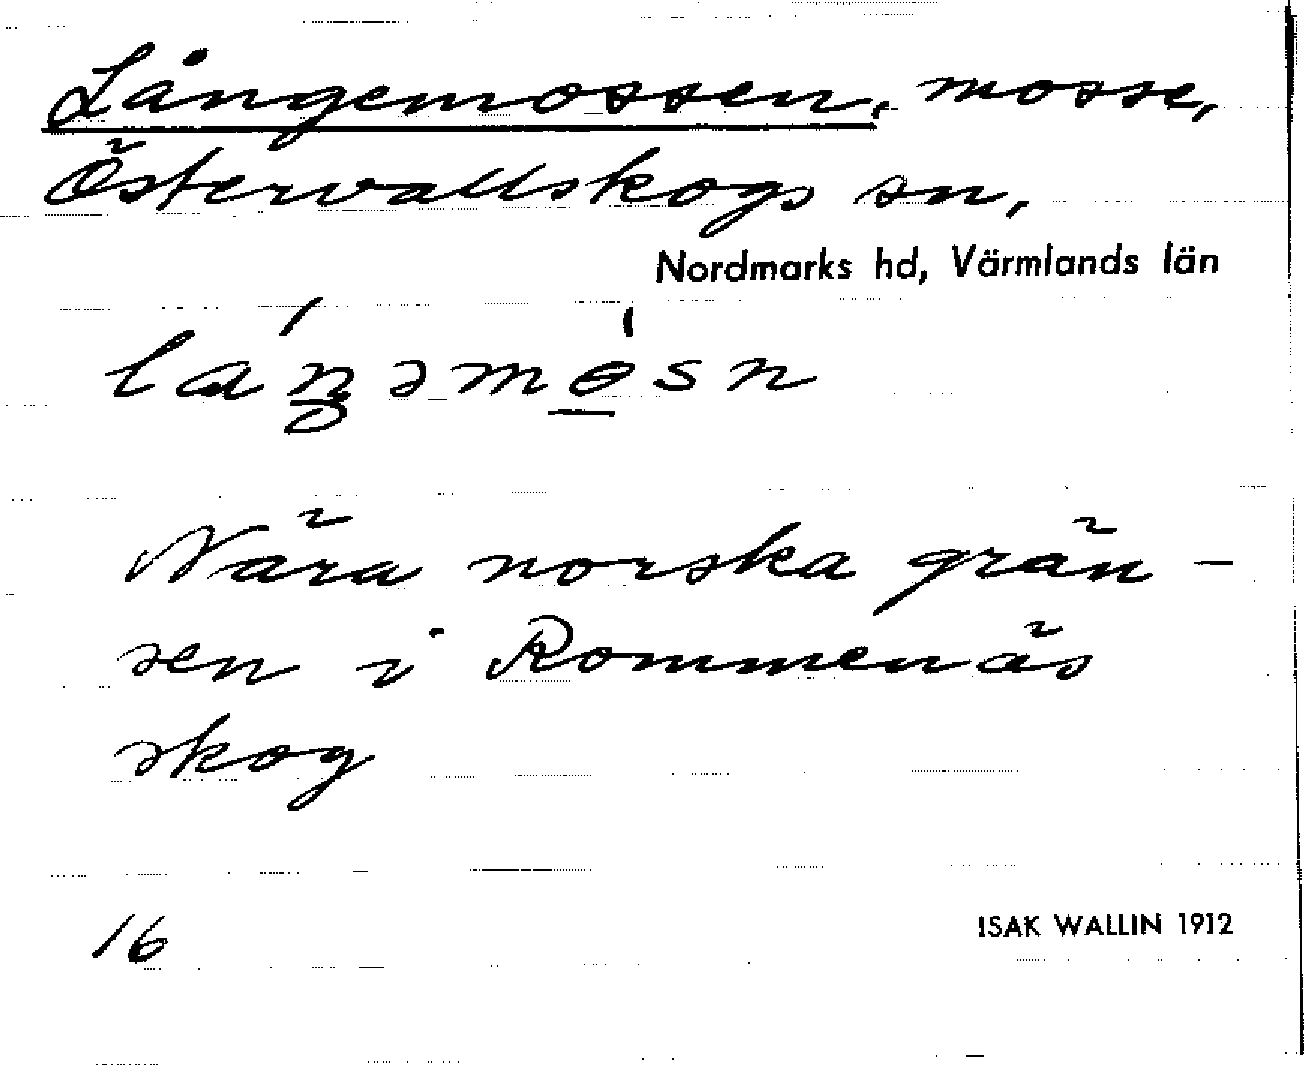 Långemossen, mosse,
Östervallskogs sn,
Nordmarks hd, Värmlands län
láŋəmɵ̀sn
Nära norska grän-
sen i Rommenäs
skog
16
ISAK WALLIN 1912